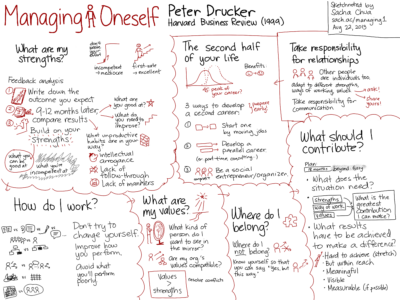 Managing Oneself
Peter Drucker
Harvard Business Review (1999)
Sketchnoted by
Sacha Chua
sach.ac/managing1
Aug 22, 2013
What are my
strengths?
incompetent
→ mediocre
first-rate
→ excellent
Feedback analysis
1 Write down the
outcome you expect
2 9-12 months later,
compare results
3 Build on your
Strengths
What are you
good at?
What do
you need to
improve?
What unproductive
habits are in your
way?
Intellectual
arrogance
Lack of
follow-through
Lack of manners
What you
can be
good at
what you're
incompetent at
The second half
of your life
Benefits:
45
peak of
your career?
3 ways to develop
a second career:
(prepare
early)
1 Start one
by moving jobs
2 Develop a
parallel career
(or part-time consulting)
3 Be a social
entrepreneur/organizer
Take responsibility
for relationships
Other people
are individuals too.
Adapt to different strengths,
ways of working, values
→ ask!
Take responsibility
for communication
→ share
yours!
What should I
contribute?
Plan
18 months
beyond
fuzzy
• What does the
situation need?
• Strengths
Ways of work
Values
What is the
greatest
contribution
I can make?
• What results
have to be achieved
to make a difference?
- Hard to achieve (stretch)
- But within reach
- Meaningful
- Visible
- Measurable (if possible)
How do I work?
Don't try to
change yourself.
Improve how
you perform.
Avoid what
you'll perform
poorly
What are
my values?
What kind of
person do I
want to see in
the mirror?
Are my org's
values compatible?
Values
>
strengths
Where do I
belong?
Where do I
not belong?
Know yourself so that
you can say "Yes, but
this way."